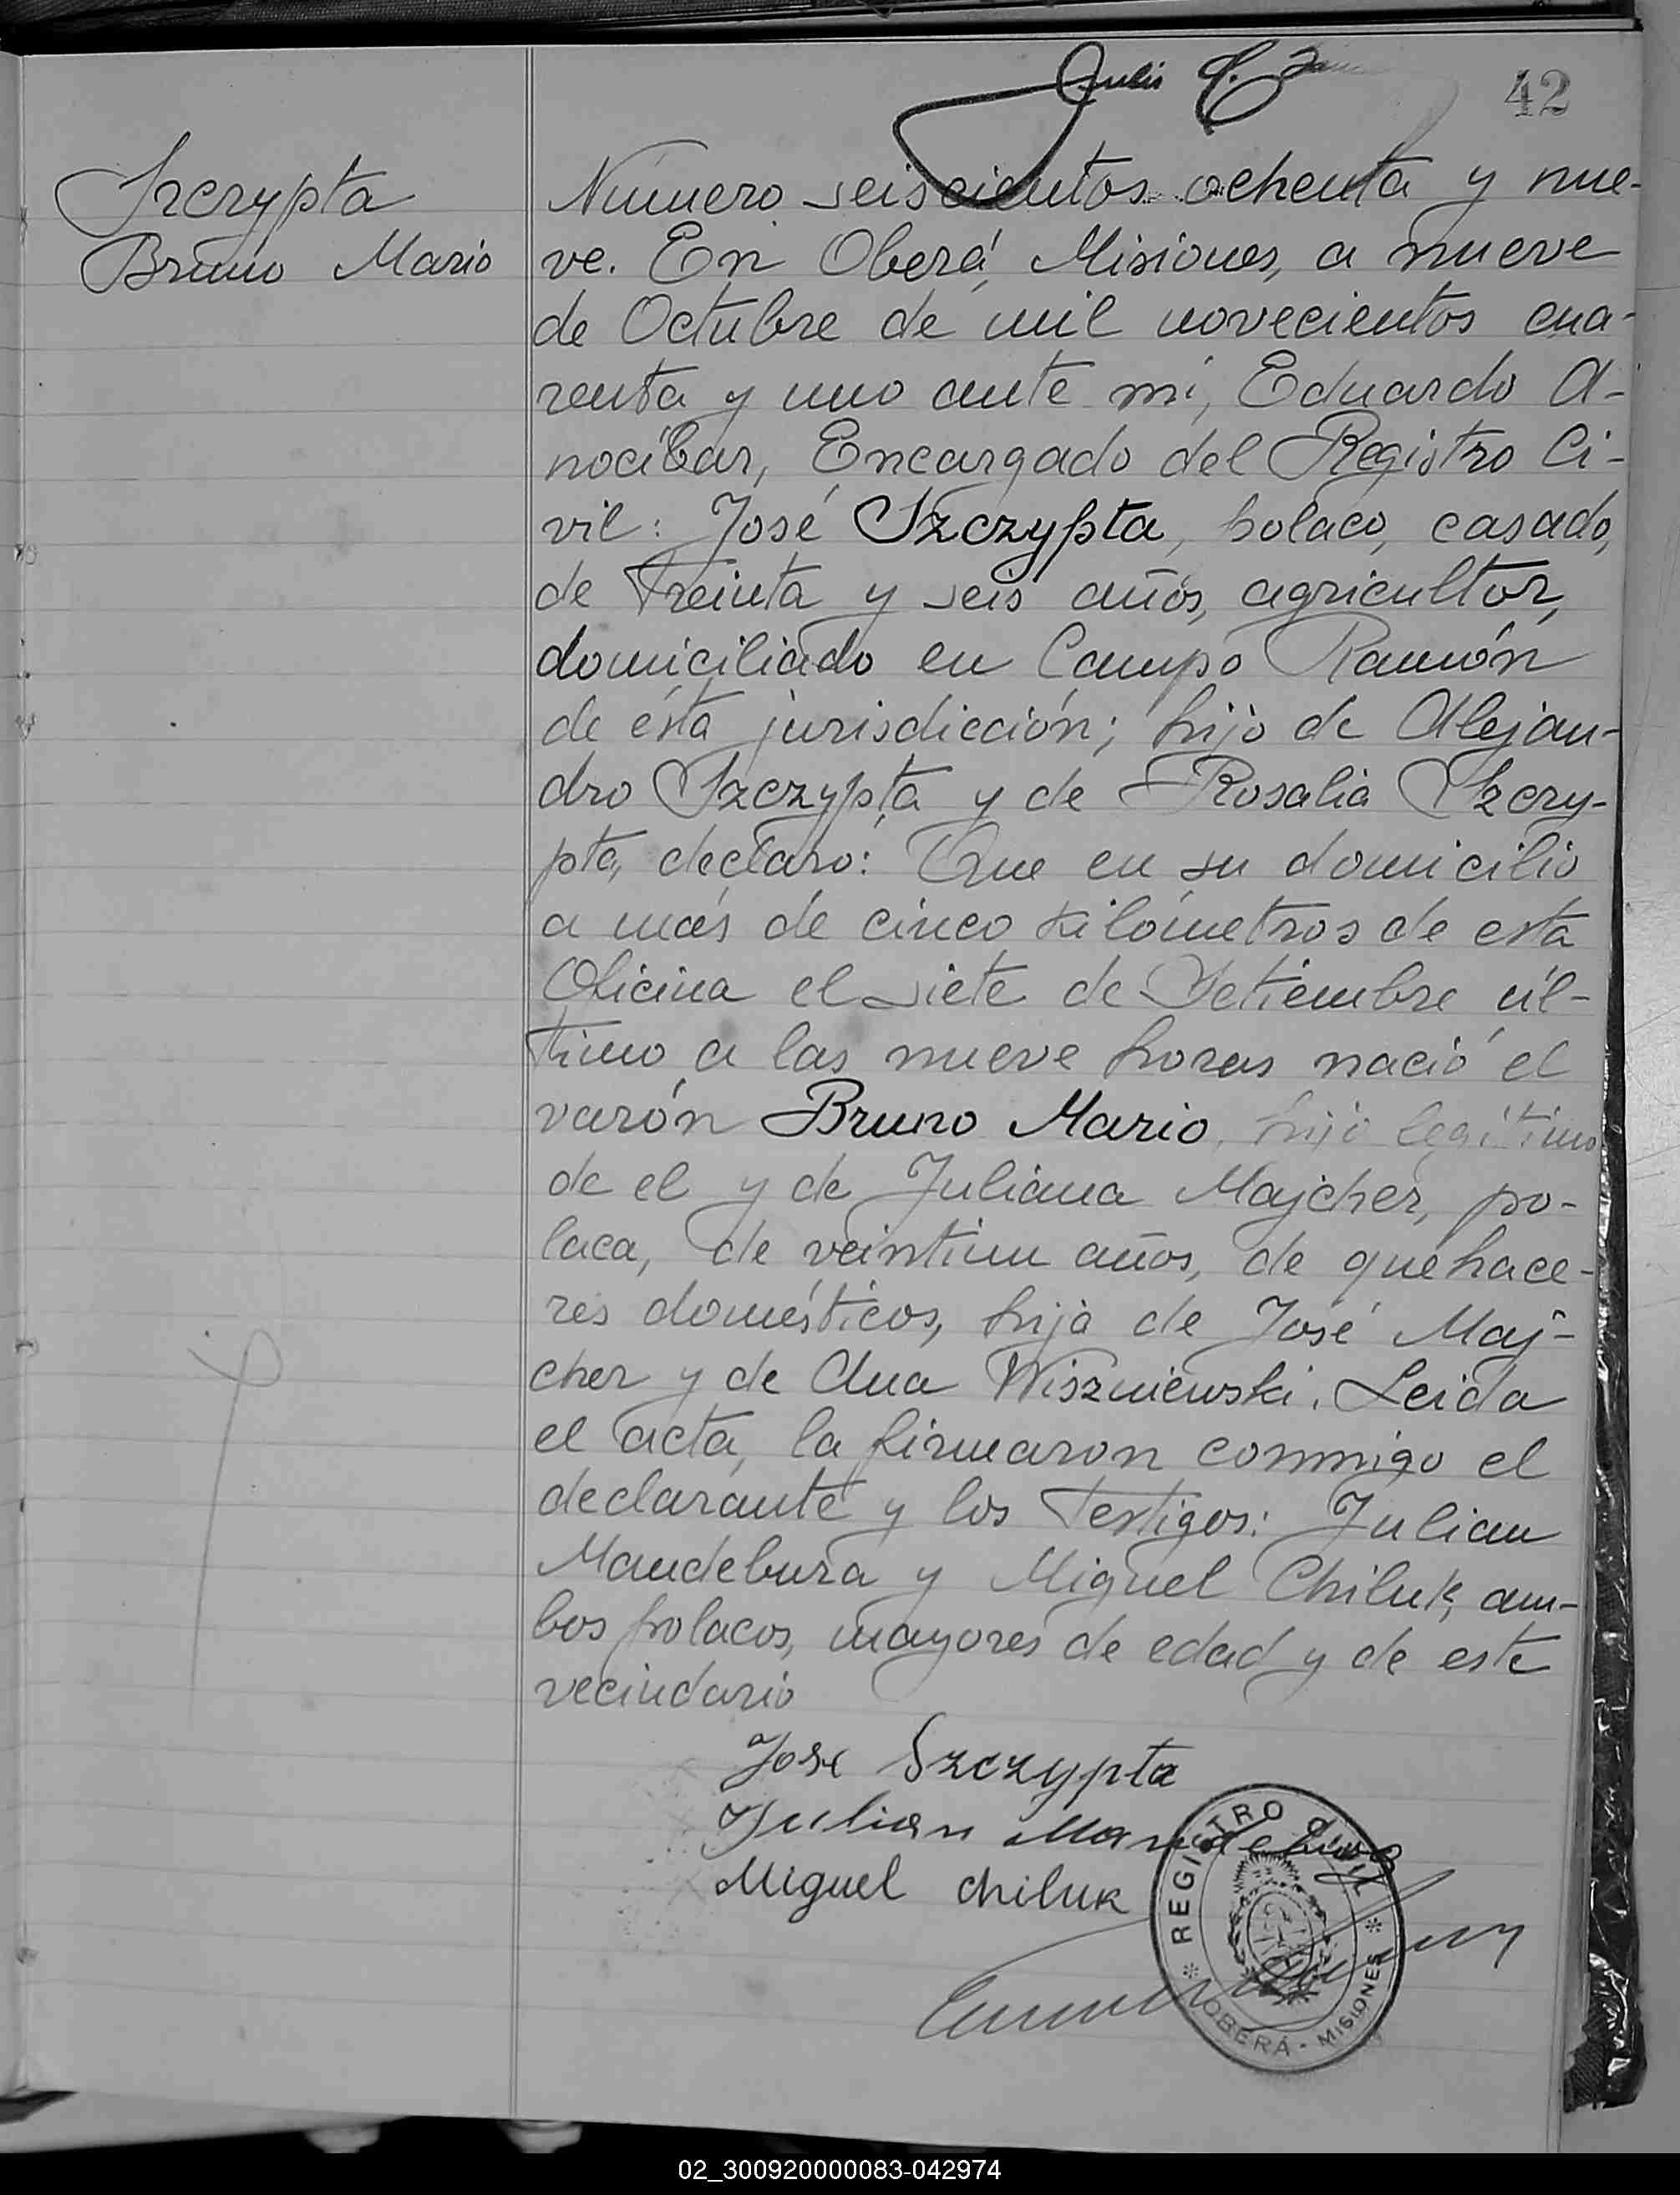 42
Szczypta
Bruno Mario
Número seiscientos ochenta y nue-
ve. En Oberá, Misiones, a nueve
de Octubre de mil novecientos cua-
renta y uno ante mí, Eduardo A-
nocíbar, Encargado del Registro Ci-
vil: José Szczypta, polaco, casado,
de treinta y seis años, agricultor,
domiciliado en Campo Ramón
de ésta jurisdicción; hijo de Alejan-
dro Szczypta y de Rosalia Szczy-
pta, declaró: Que en su domicilio
a más de cinco kilómetros de esta
Oficina el siete de Setiembre úl-
timo a las nueve horas nació el
varón Bruno Mario, hijo legítimo
de el y de Juliana Majcher, po-
laca, de veintiun años, de quehace-
res domésticos, hija de José Maj-
cher y de Ana Wiszniewski. Leida
el acta, la firmaron conmigo el
declarante y los testigos: Julian
Mandebura y Miguel Chiluk, am-
bos polacos, mayores de edad y de este
vecindario
Jose Szczypta
Julian Mandebura
Miguel Chiluk
REGISTRO CIVIL
OBERÁ - MISIONES
02_300920000083-042974